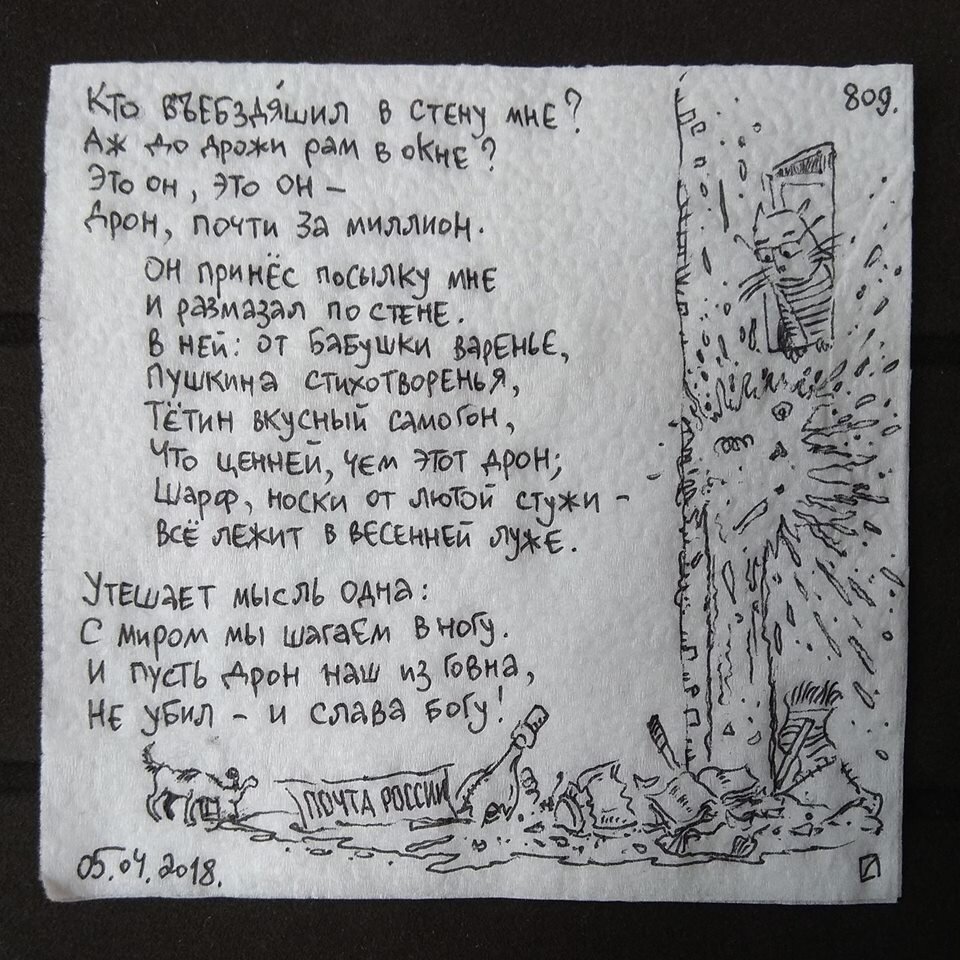 809.
Кто въебздя́шил в стену мне?
Аж до дрожи рам в окне?
Это он, это он –
Дрон, почти за миллион.
Он принёс посылку мне
и размазал по стене.
В ней: от бабушки варенье,
Пушкина стихотворенья,
Тётин вкусный самогон,
Что ценней, чем этот дрон;
Шарф, носки от лютой стужи –
Всё лежит в весенней луже.
Утешает мысль одна:
С миром мы шагаем в ногу.
И пусть дрон наш из говна,
Не убил – и слава богу!
ПОЧТА РОССИИ
05.04.2018.